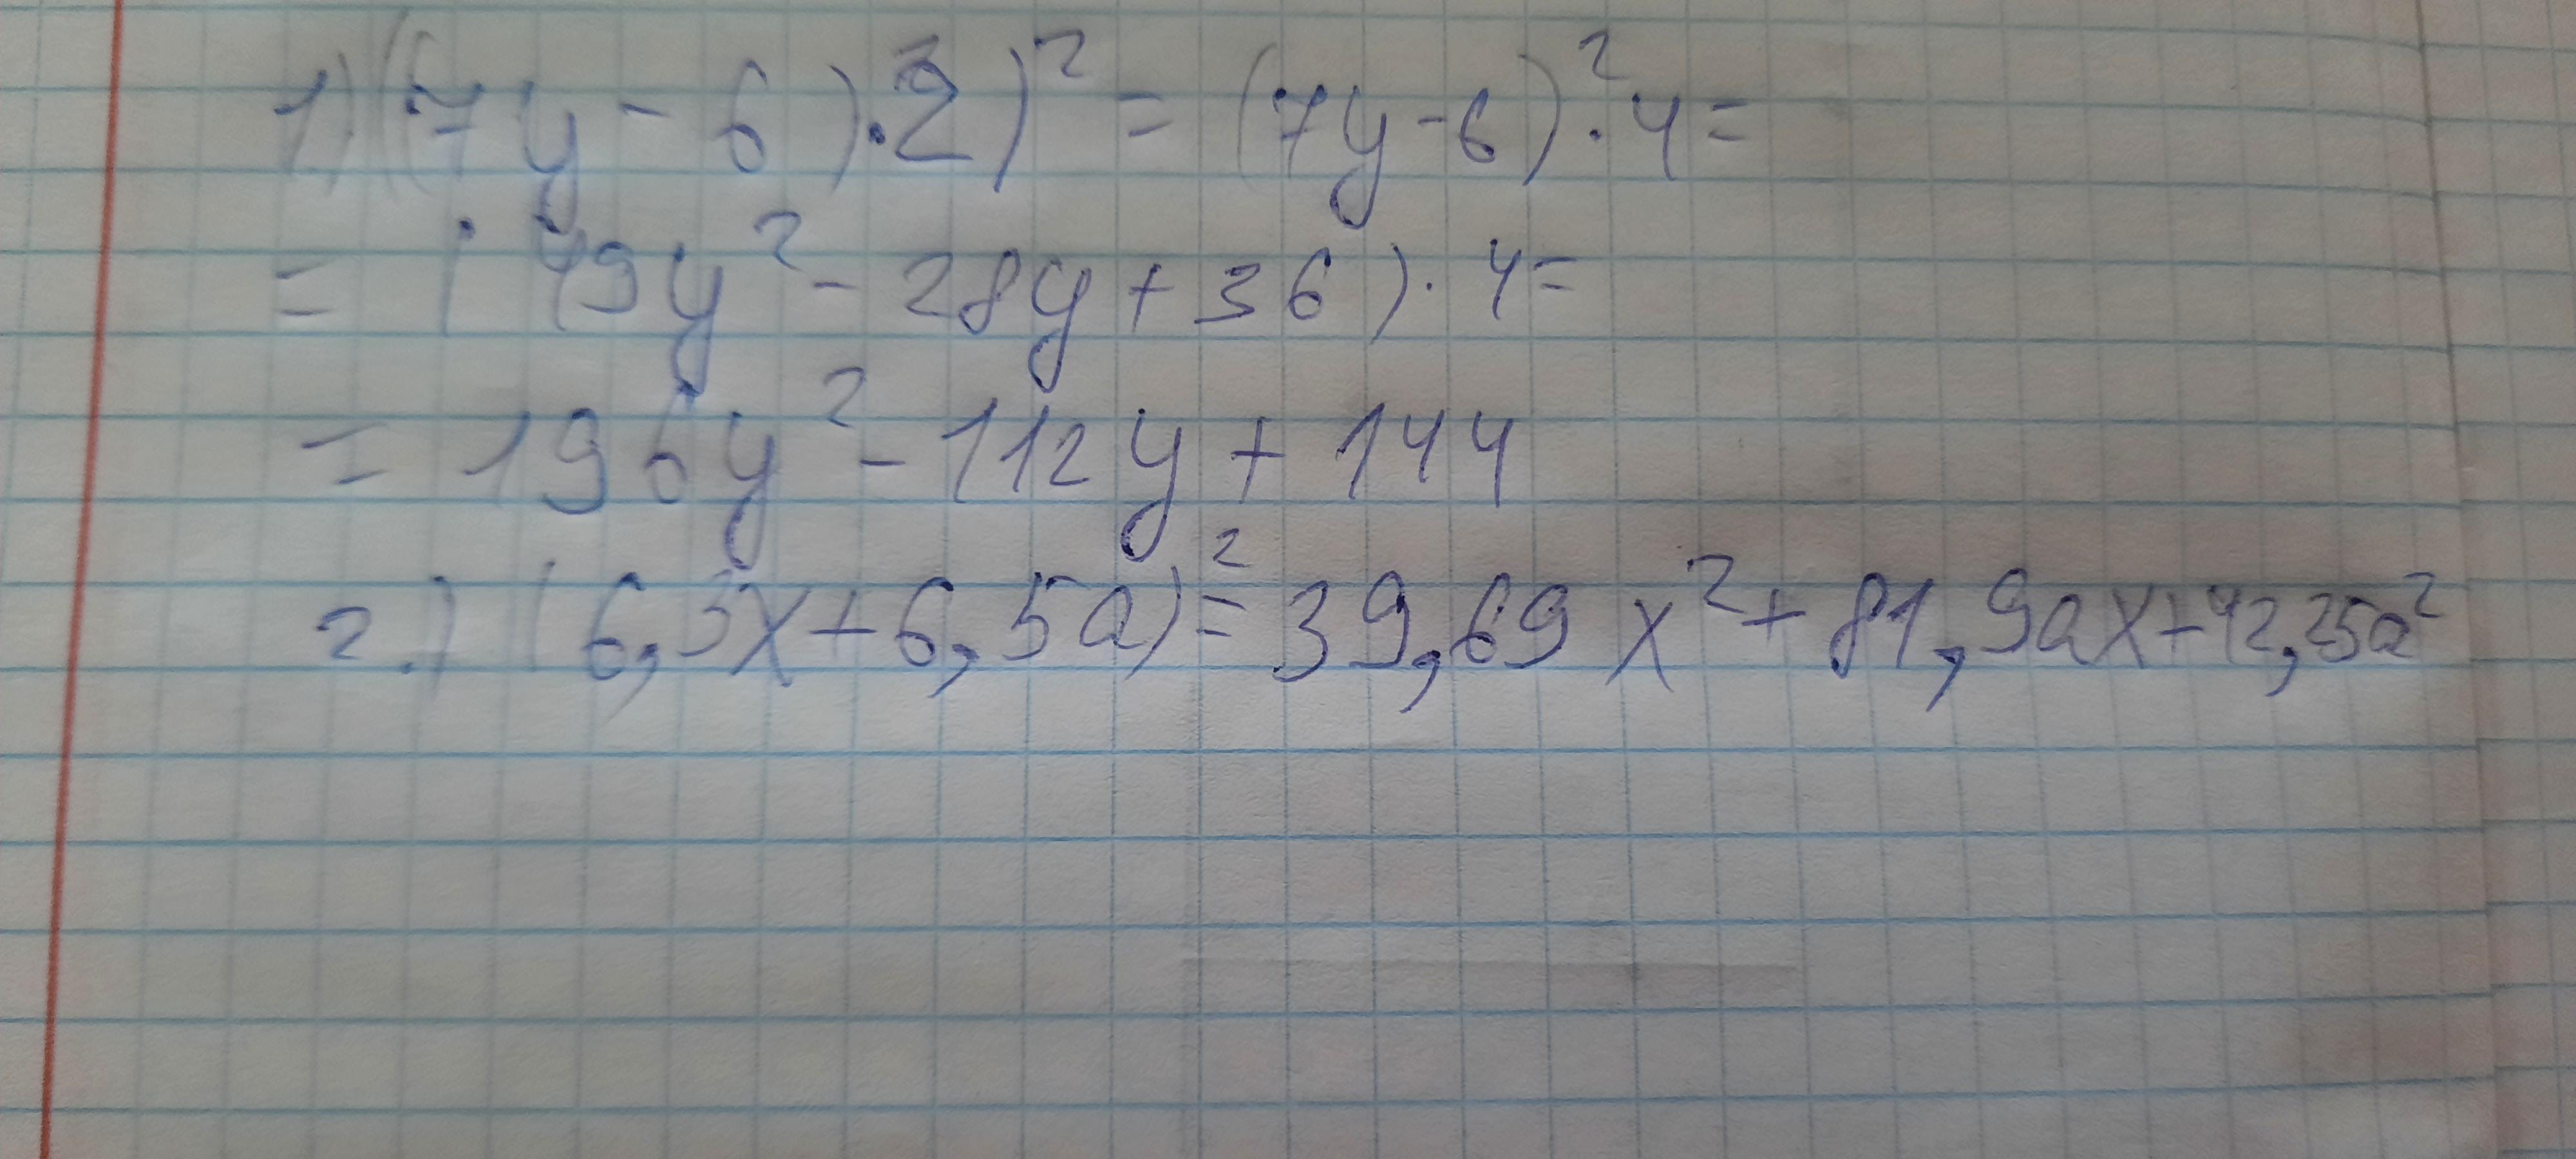 1) ((7y - 6) · 2)² = (7y - 6)² · 4 =
= (49y² - 28y + 36) · 4 =
= 196y² - 112y + 144
2.) (6,3x + 6,5a)² = 39,69x² + 81,9ax + 42,25a²